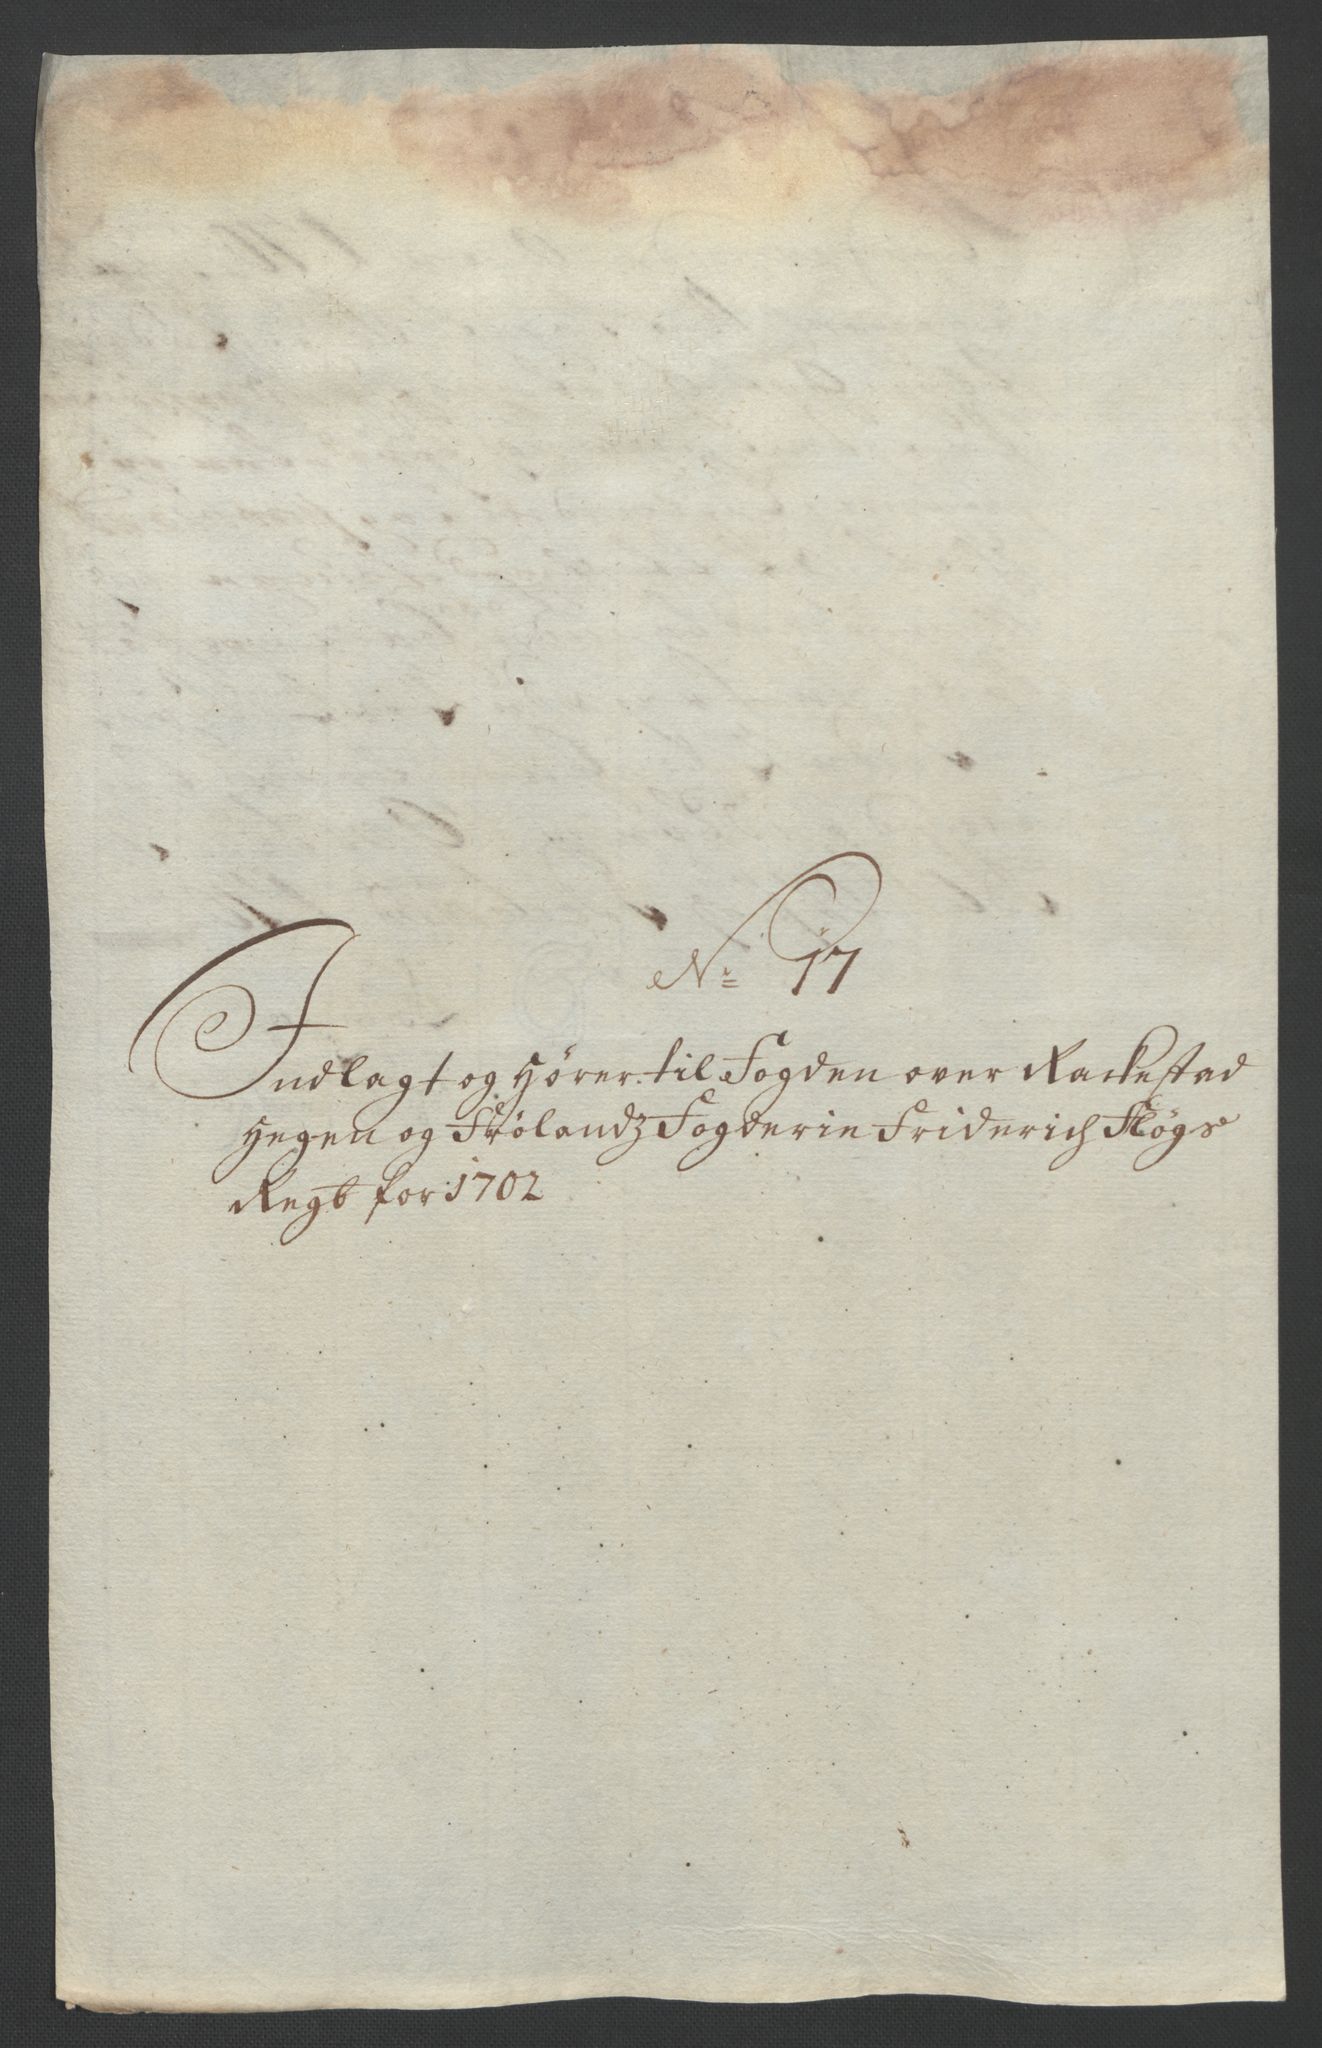 No 17
Indlagt og hører til Fogden over Rackestad
Hegen og Frølandz Fogderie Friderich Fløgs
Regb for 1702